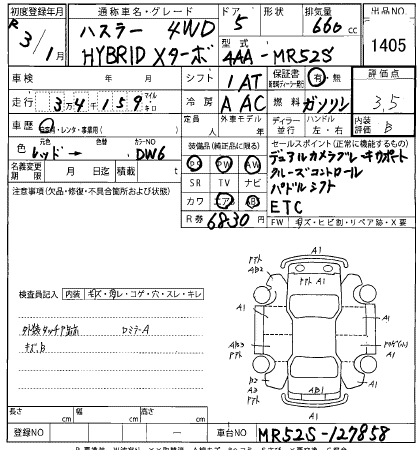 初度登録年月 通称車名・グレード ドア 形状 排気量 出品NO
R 3/1月 ハスラー 4WD 5 660cc 1405
HYBRID Xターボ 型式 4AA-MR52S
車検 年 月 シフト 1AT 保証書 有・無 評価点
走行 3万4千159 マイル キロ 冷房 AAC 燃料 ガソリン 3,5
車歴 自家用・レンタ・事業用( ) 定員 人 外車モデル 年 ディーラー 並行 ハンドル 左・右 内装評価 B
色 元色 レッド→ 色替 カラーNO DW6 装備品(純正品に限る) セールスポイント(正常に機能するもの)
名義変更期限 月 日迄 積載 t PS PW AW デュアルカメラブレーキサポート
注意事項(欠品・修復・不具合箇所および状態) SR TV ナビ クルーズコントロール
カワ エアB ABS パドルシフト
R券 6830円 ETC
FW キズ・ヒビ割・リペア跡・X要
検査員記入 内装 キズ・汚レ・コゲ・穴・スレ・キレ
キズ、B
A1
AB2
A1
A1
AB3
A1
B2
A3
AB1
A1
長さ cm 幅 cm 高さ cm
登録NO ー 車台NO MR52S-127858